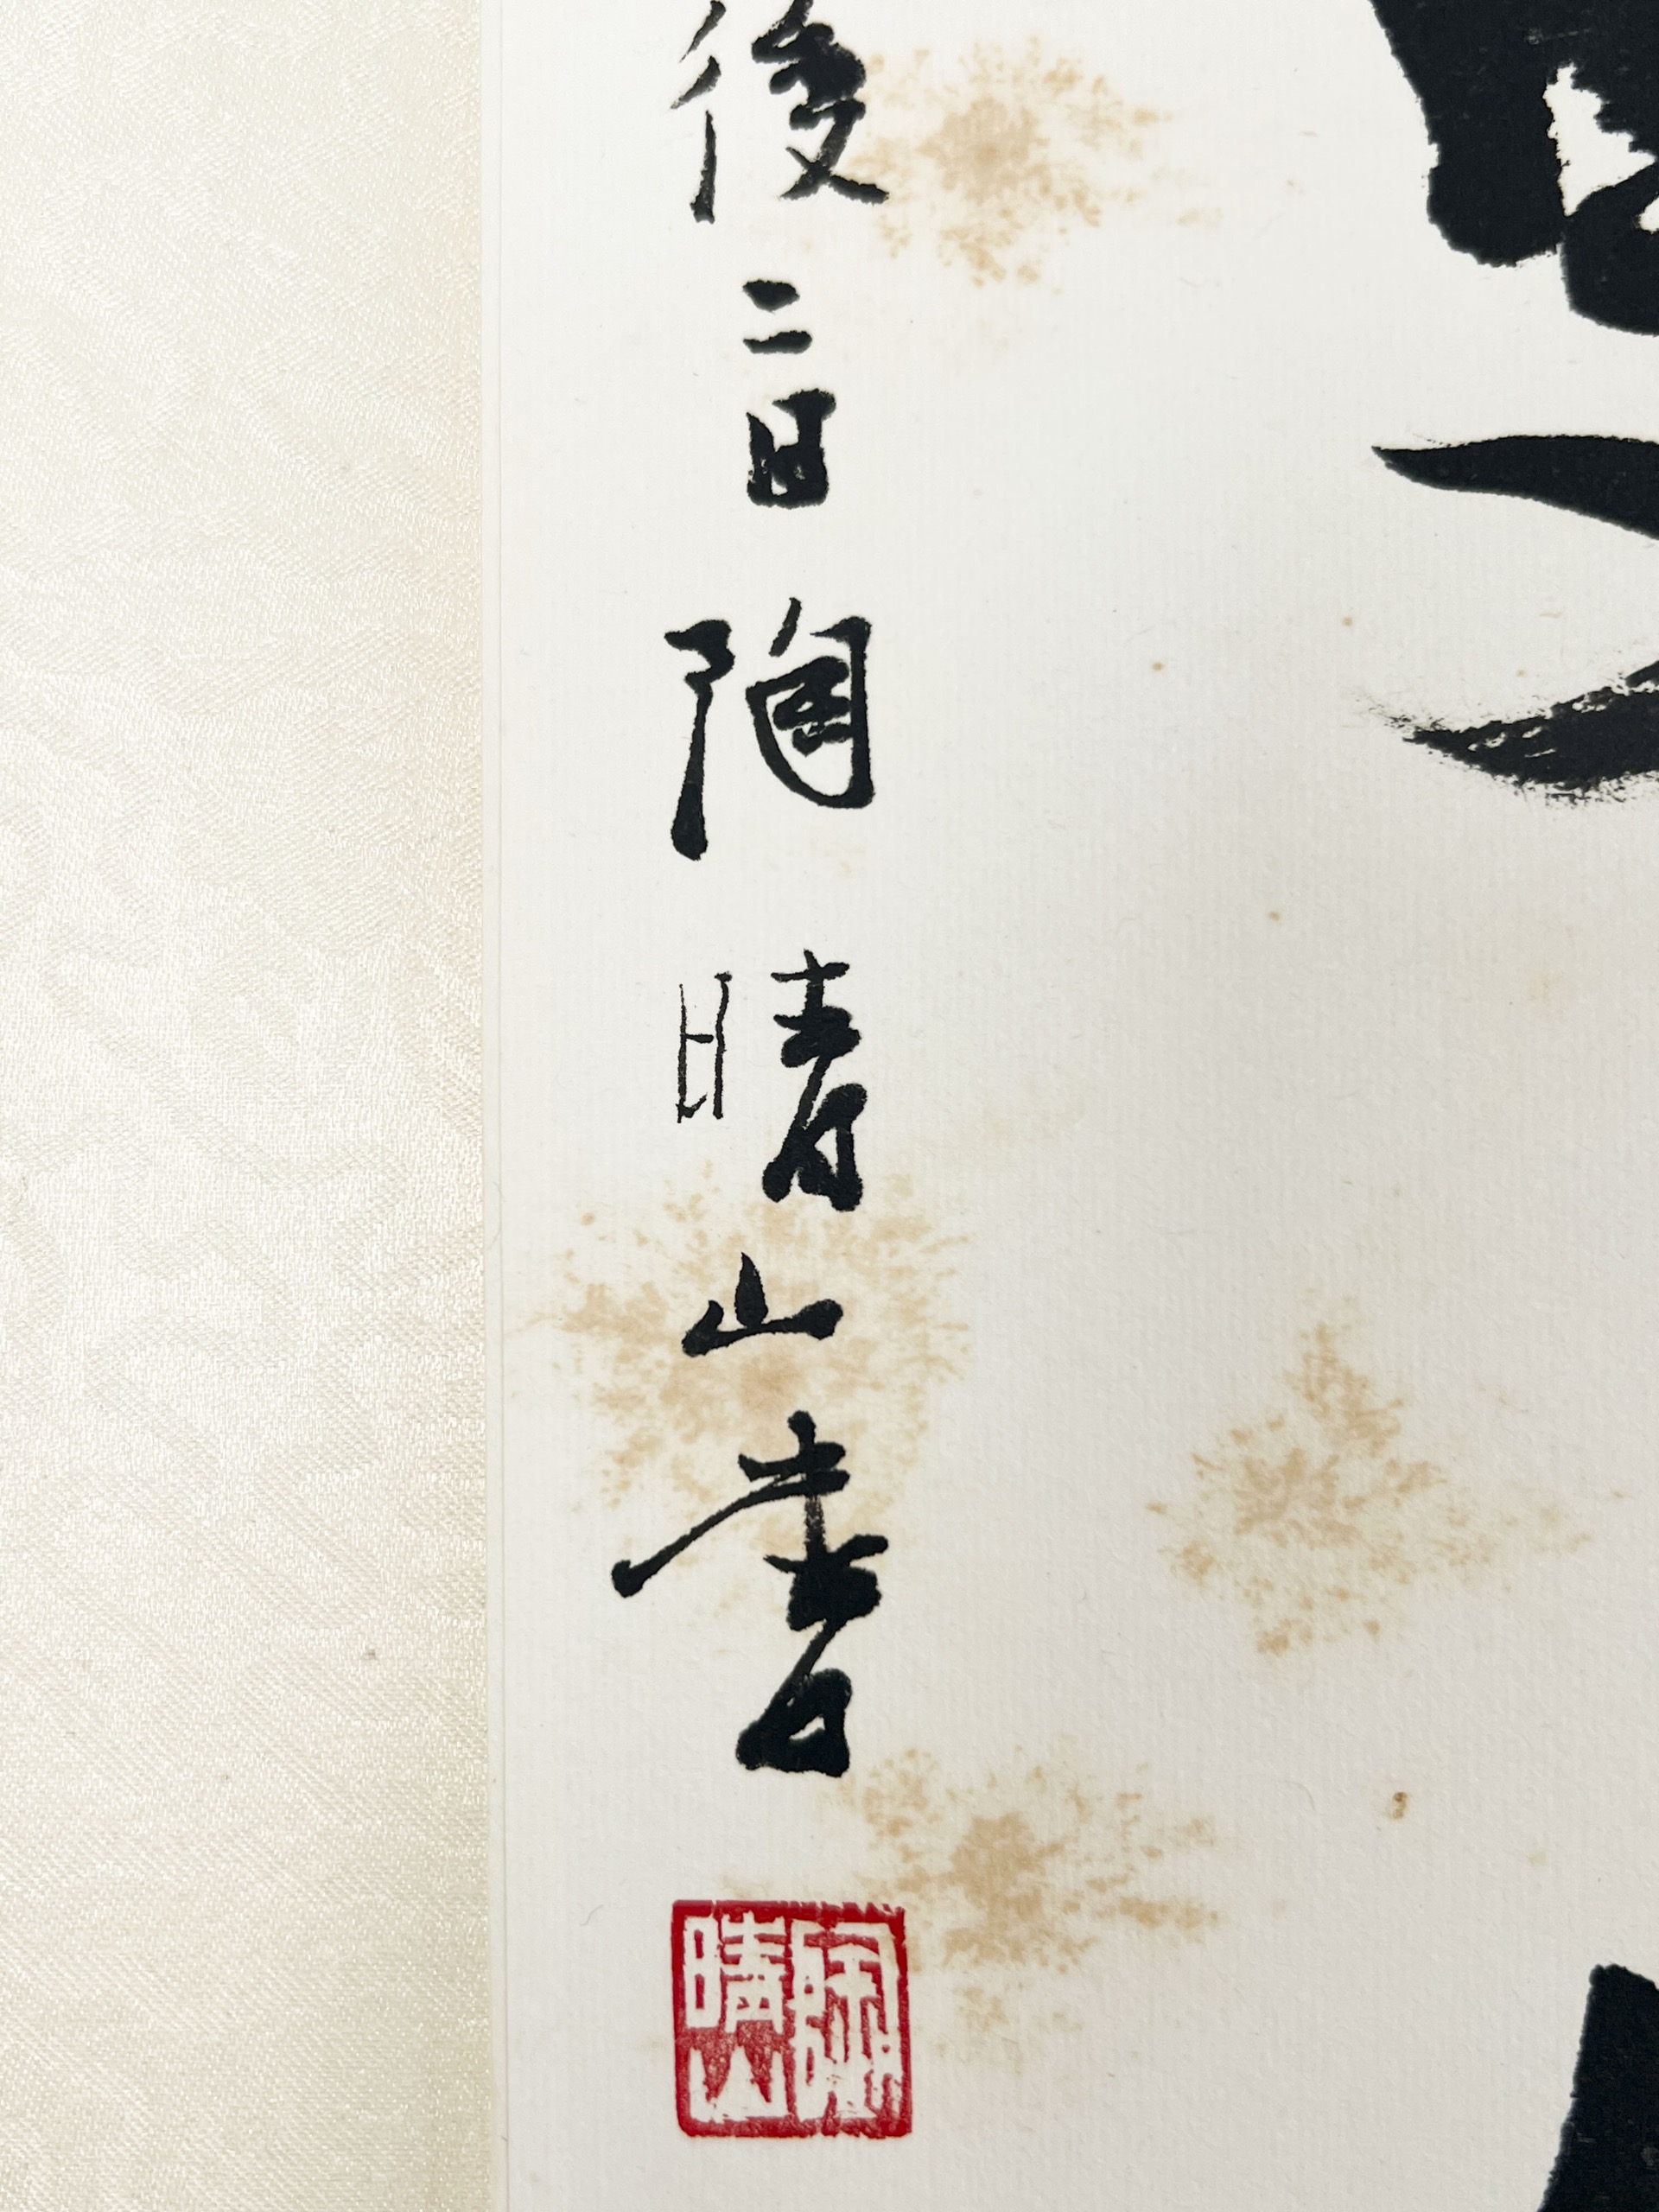 後二日陶晴山書
陶晴山